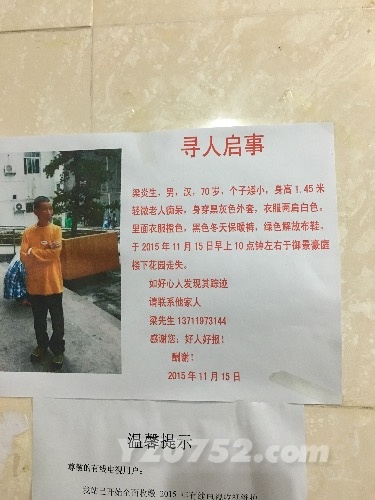 寻人启事
梁炎生，男，汉，70岁，个子矮小，身高1.45米
轻微老人痴呆，身穿黑灰色外套，衣服两肩白色，
里面衣服橙色，黑色冬天保暖裤，绿色解放布鞋，
于2015年11月15日早上10点钟左右于御景豪庭
楼下花园走失。
如好心人发现其踪迹
请联系他家人
梁先生 13711973144
感谢您：好人好报！
酬谢！
2015年11月15日
温馨提示
尊敬的有线电视用户：
我站已开始全面收缴 2015
YZ0752.com